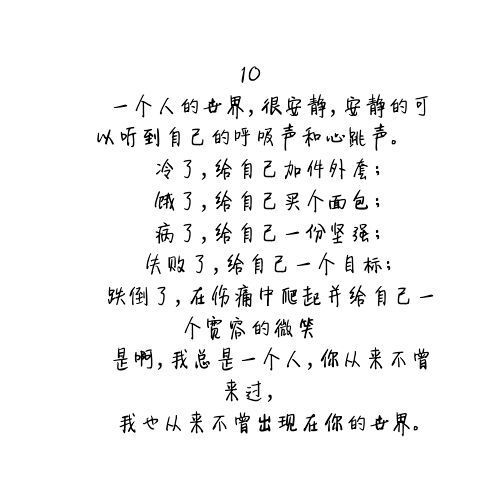 10
一个人的世界,很安静,安静的可
以听到自己的呼吸声和心跳声。
冷了,给自己加件外套;
饿了,给自己买个面包;
病了,给自己一份坚强;
失败了,给自己一个目标;
跌倒了,在伤痛中爬起并给自己一
个宽容的微笑
是啊,我总是一个人,你从来不曾
来过,
我也从来不曾出现在你的世界。